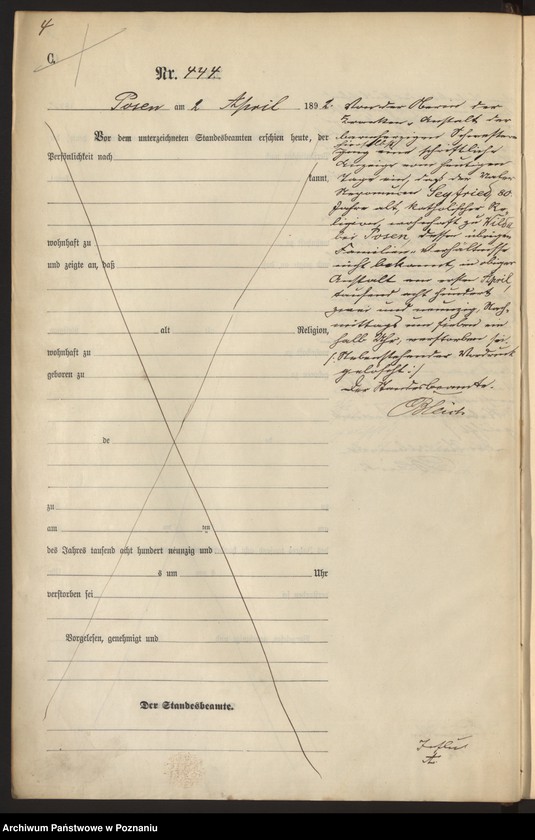 4
C.
Nr. 444
Posen am 2 April 1892
Vor dem unterzeichneten Standesbeamten erschien heute, der
Persönlichkeit nach
kannt,
wohnhaft zu
und zeigte an, daß
alt Religion,
wohnhaft zu
geboren zu
de
zu
am ten
des Jahres tausend acht hundert neunzig und
s um Uhr
verstorben sei
Vorgelesen, genehmigt und
Der Standesbeamte.
Von der Oberin der
Kranken-Anstalt der
barmherzigen Schwestern
ging eine schriftliche
Anzeige vom heutigen
Tage ein, daß der
Nepomucen Segfried, 80
Jahre alt, katholischer Re-
ligion, wohnhaft zu Wilda
bei Posen, dessen übrigen
Familien-Verhältnisse
nicht bekannt, in obiger
Anstalt am ersten April
tausend acht hundert
zwei und neunzig Nach-
mittags um sieben ein
halb Uhr, verstorben sei.
/: Nebenstehender Vordruck
gelöscht :/
Der Standesbeamte.
Bleich
Archiwum Państwowe w Poznaniu